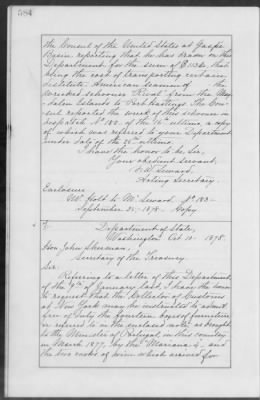 584
the Consul of the United States at Gaspé
Basin, reporting that he has drawn on this
Department for the sum of
being the cost of transporting certain
destitute American seamen of the
wrecked schooner Rival from the Mag-
dalen Islands to Port Hastings. The Con-
sul reported the wreck of this schooner in
dispatch No. 182. of the 16th ultimo, a copy
of which was referred to your Department
under date of the 25th ultimo.
I have the honor to be, Sir,
Your obedient servant,
F. W. Seward,
Acting Secretary.
Enclosure
Mr. Holt to Mr. Seward. No. 183-
September 25, 1878. Copy.
Department of State,
Washington Oct 10 - 1878.
Hon John Sherman,
Secretary of the Treasury.
Sir.
Referring to a letter of this Department,
of the 9th of January last, I have the honor
to request that the Collector of Customs
at New York may be instructed to admit
free of duty the fourteen boxes of furniture
or referred to in the enclosed note, as brought
by the Minister of Portugal, in this country
in March 1877, by the "Mariana 4", and
the two casks of wine which arrived for